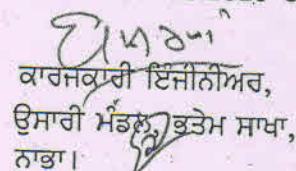 ਕਾਰਜਕਾਰੀ ਇੰਜੀਨੀਅਰ,
ਉਸਾਰੀ ਮੰਡਲ, ਭਤੇਮ ਸਾਖਾ,
ਨਾਭਾ।